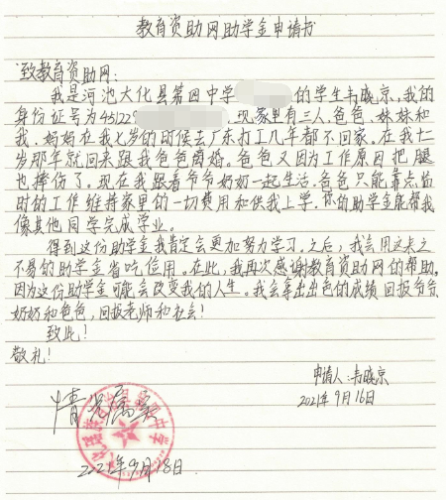 教育资助网助学金申请书
致教育资助网：
我是河池大化县第四中学 的学生韦晓京，我的
身份证号为451229 现家里有三人，爸爸、妹妹和
我、妈妈在我七岁的时候去广东打工几年都不回家。在我十
岁那年就回来跟我爸爸离婚。爸爸又因为工作原因把腿
也摔伤了。现在我跟着爷爷奶奶一起生活，爸爸只能靠点临
时的工作维持家里的一切费用和供我上学，你的助学金能帮我
像其他同学完成学业。
得到这份助学金我肯定会更加努力学习。之后，我会用这来之
不易的助学金省吃信用。在此，我再次感谢教育资助网的帮助，
因为这份助学金可能会改变我的人生。我会拿出出色的成绩回报爷爷
奶奶和爸爸，回报老师和社会！
致此！
敬礼！
申请人：韦晓京
2021年9月16日
情况属实
2021年9月18日